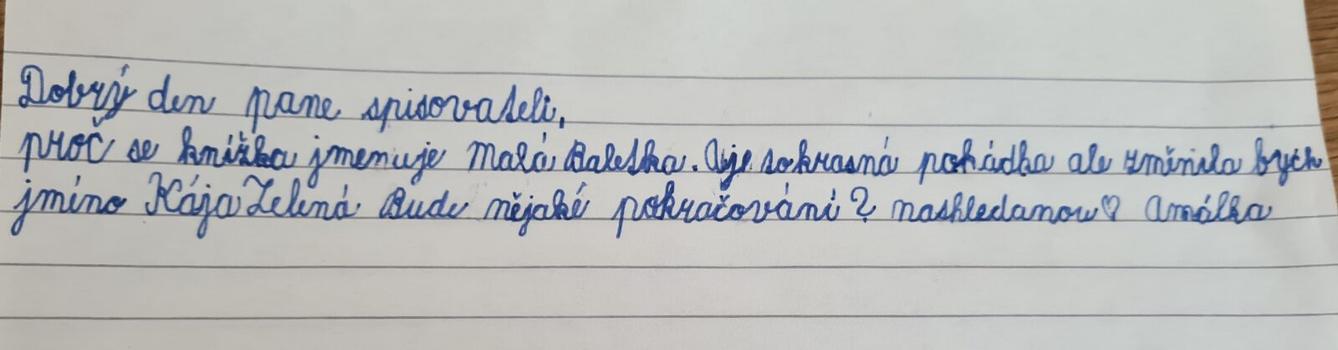 Dobrý den pane spisovateli,
proč se knížka jmenuje Malá Baletka. Je to krásná pohádka ale změnila bych
jméno Kája Zelená Bude nějaké pokračování? nashledanou♡ Amálka